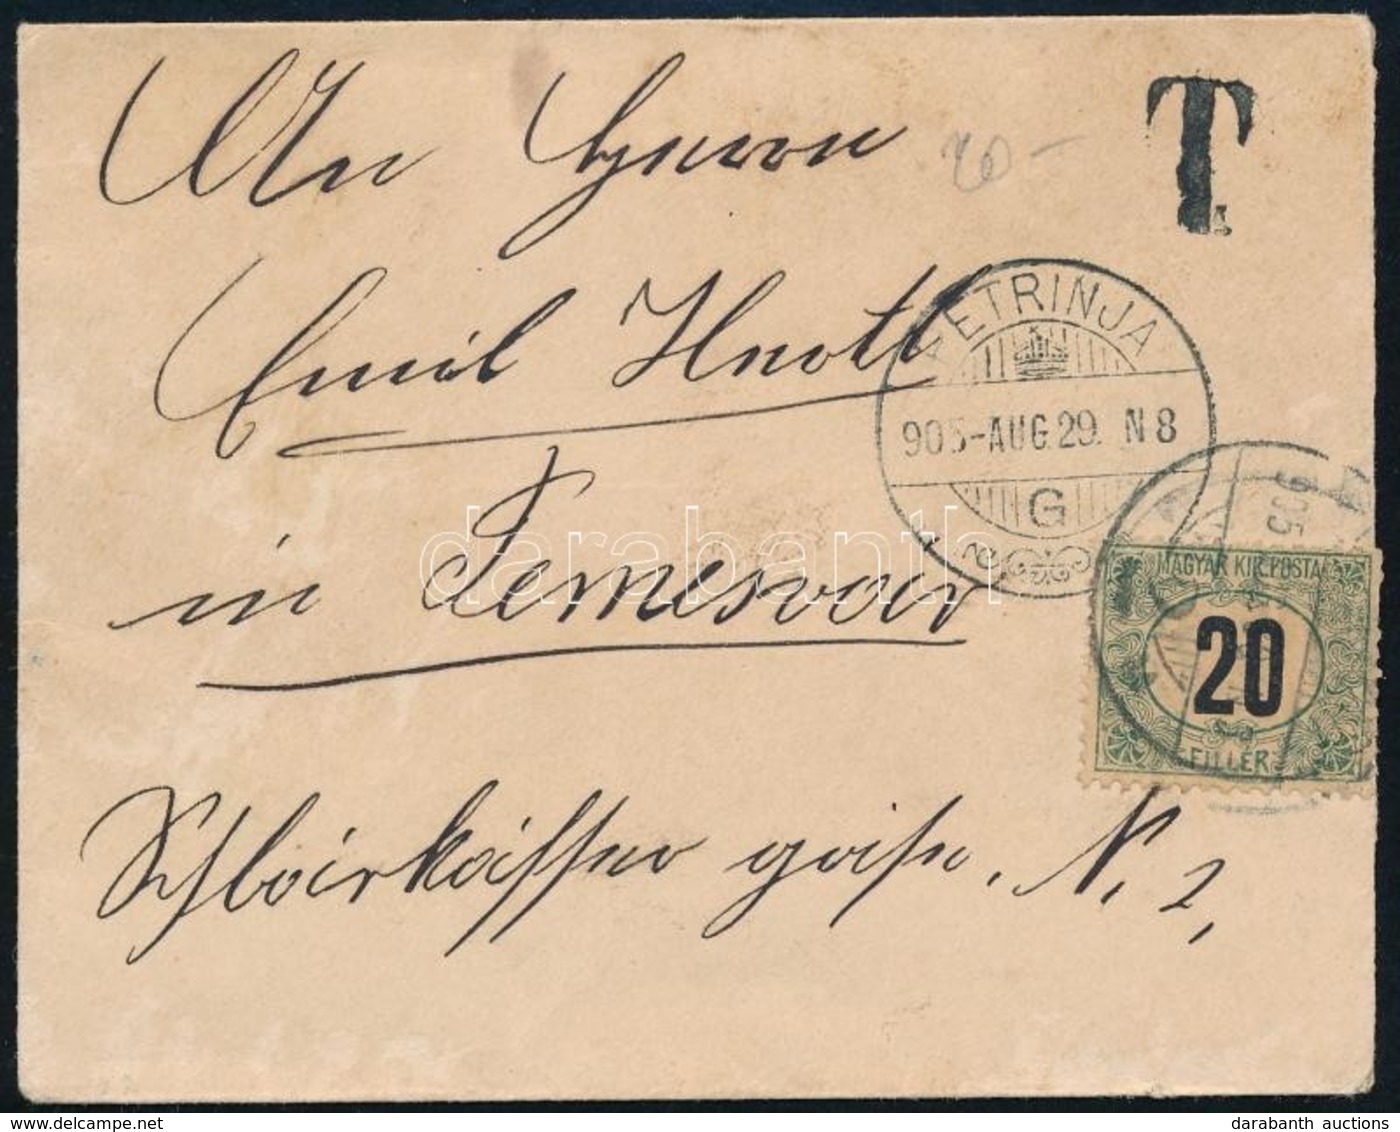 An Herrn
T
Emil Knoll
PETRINJA
905-AUG.29. N 8
G
905
in Temesvar
MAGYAR KIR. POSTA
20
FILLÉR
N. 2,
darabanth
delcampe.net
darabanth auctions